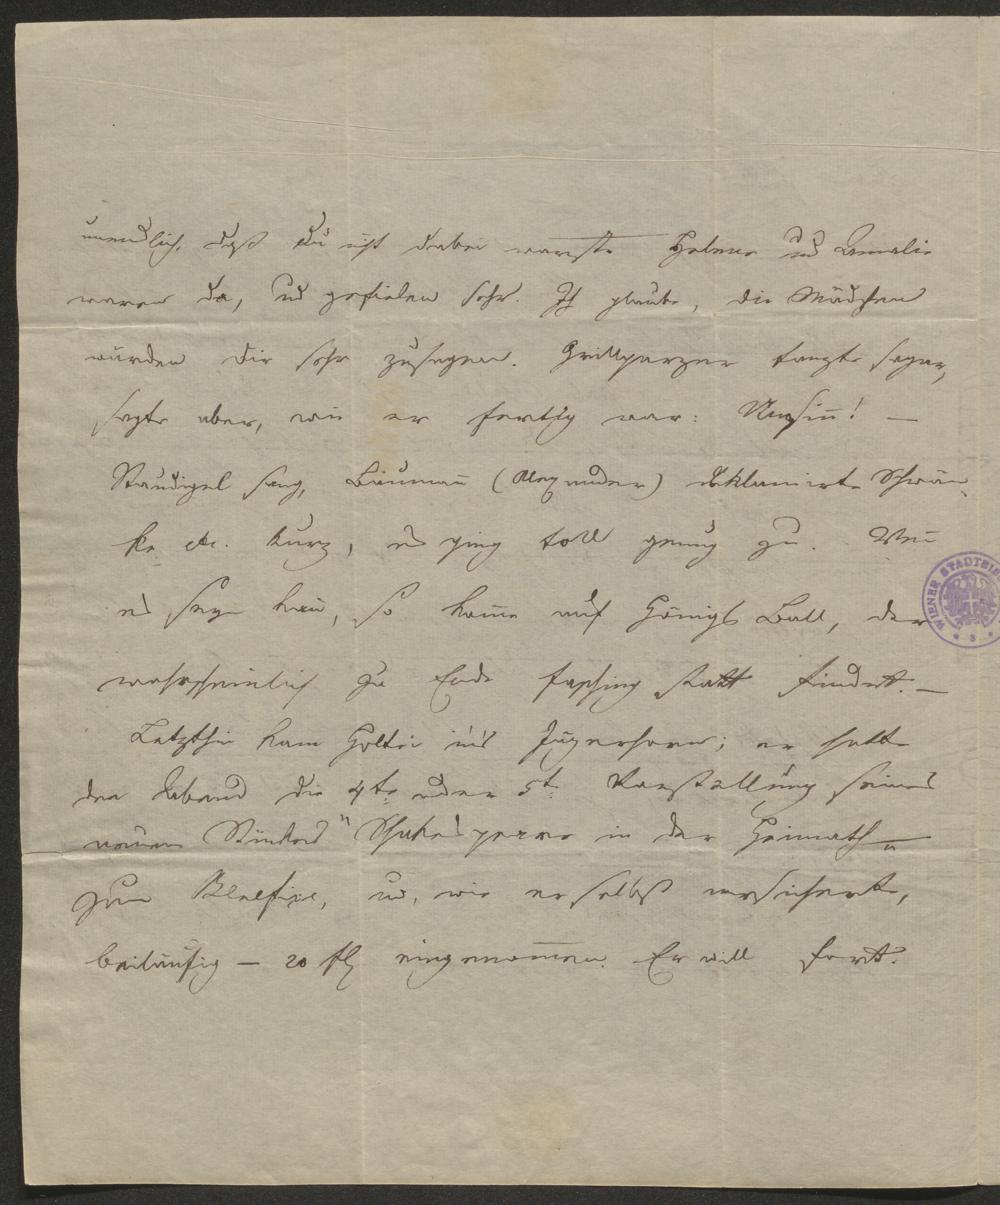 unendlich, daß du nicht dabei warst. Helene und Amalie
waren da, und gefielen sehr. Ich glaube, die Mädchen
würden dir sehr zusagen. Grillparzer tanzte sogar,
sagte aber, wie er fertig war: Unsinn! —
Staudigel sang, Baumañ (Alexander) deklamirte Schwän-
ke etc. kurz, es ging toll genug zu. Weñ
es seyn kañ, so kom̄e auf Hönigs Ball, der
wahrscheinlich zu Ende Fasching statt findet. —
Letzthin kam Holtei ins Jägerhorn; er hatte
den Abend die 4te oder 5te Vorstellung seines
neuen Stückes "Shakespeare in der Heimath"
zum Benefize, und, wie er selbst versicherte,
beiläufig — 20 fl eingenom̄en. Er will fort.
WIENER STADTBIB